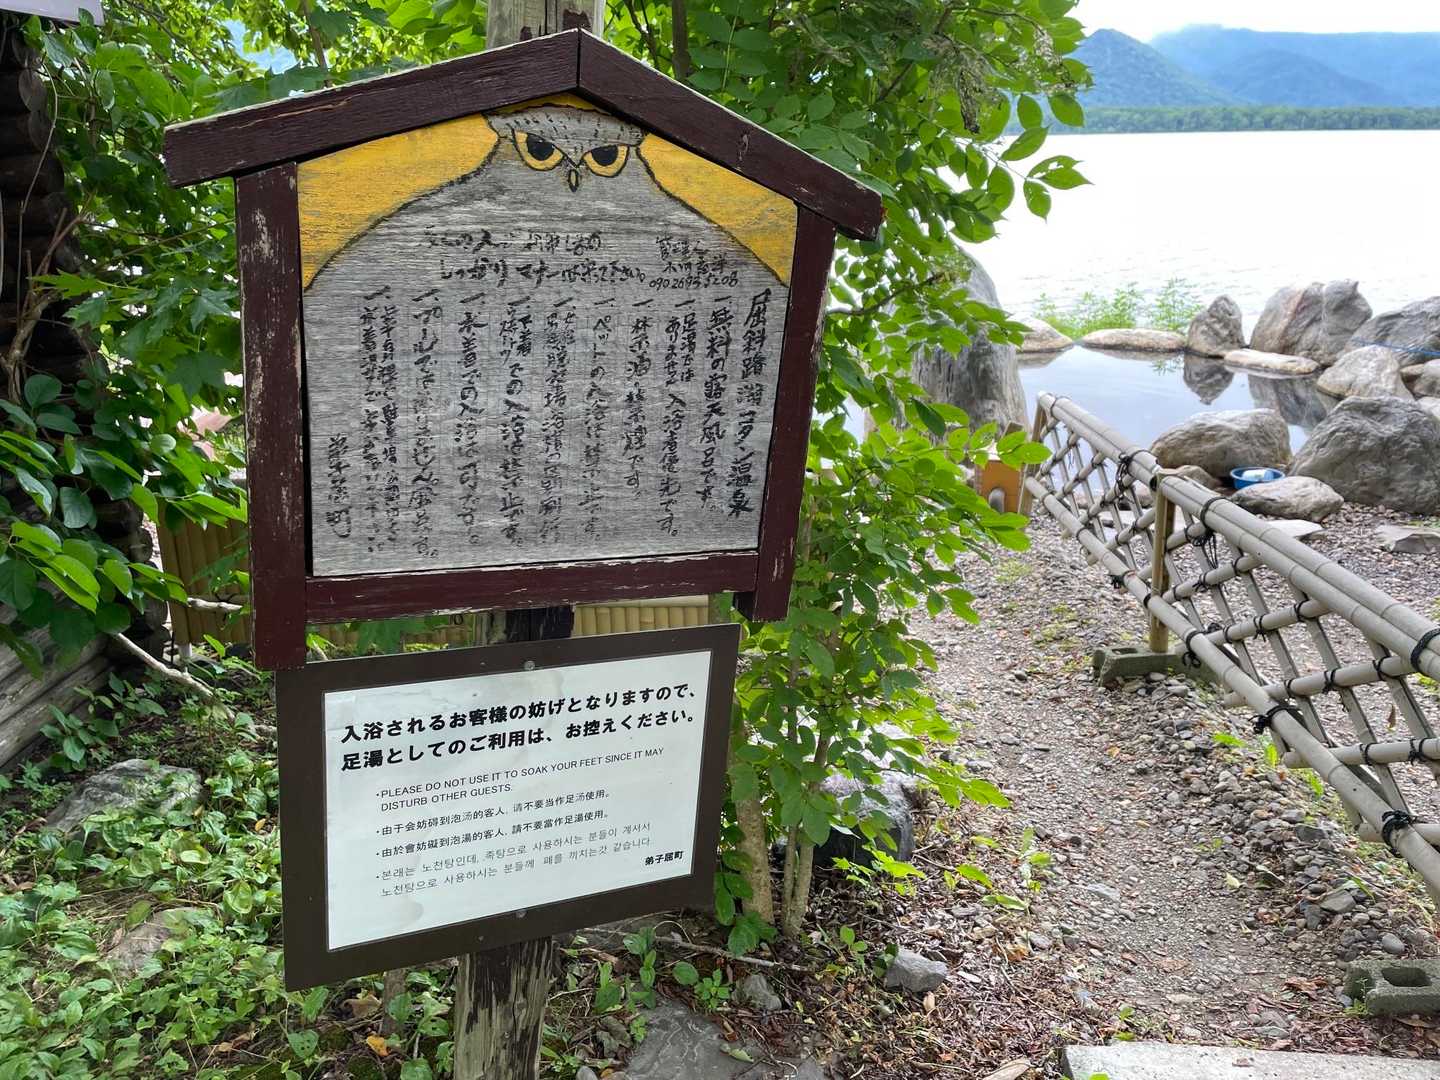 しっかりマナーは守って下さい。
管理人
090 2693 5208
屈斜路湖コタン温泉
一、無料の露天風呂です。
一、足湯では
ありません 入浴者優先です。
一、禁酒・禁煙です。
一、ペットの入浴は禁止です。
一、下着
短パンツでの入浴は禁止です。
一、水着での入浴は可です。
一、プールではありません。風呂です。
弟子屈町
入浴されるお客様の妨げとなりますので、
足湯としてのご利用は、お控えください。
・PLEASE DO NOT USE IT TO SOAK YOUR FEET SINCE IT MAY
DISTURB OTHER GUESTS.
・由于会妨碍到泡汤的客人, 请不要当作足汤使用。
・由於會妨礙到泡湯的客人, 請不要當作足湯使用。
・본래는 노천탕인데, 족탕으로 사용하시는 분들이 계셔서
노천탕으로 사용하시는 분들께 폐를 끼치는것 같습니다.
弟子屈町